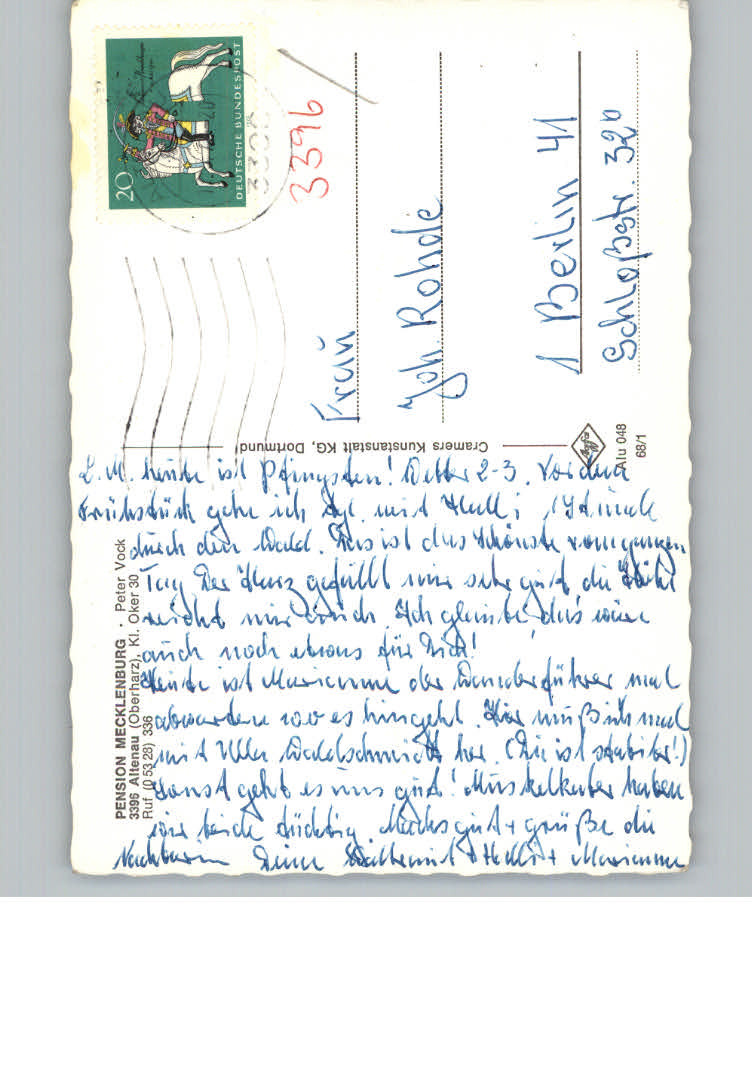 20
DEUTSCHE BUNDESPOST
3396
Frau
Joh. Rohde
1 Berlin 41
Schloßstr. 32b
Cramers Kunstanstalt KG, Dortmund
Alu 048
68/1
PENSION MECKLENBURG · Peter Vock
3396 Altenau (Oberharz), Kl. Oker 30
Ruf (0 53 28) 336
L. M. Heute ist Pfingsten! Wetter 2-3. Vor dem
Frühstück gehe ich tgl. mit Helli 1 Stunde
durch den Wald. Das ist das Schönste vom ganzen
Tag. Der Harz gefällt mir sehr gut die Höhe
reicht mir auch. Ich glaube das wäre
auch noch etwas für Dich!
Heute ist Marianne der Wanderführer mal
abwarten wo es hingeht. Hier muß ich mal
mit Ulla Waldschmidt her. (Die ist stabiler!)
Sonst geht es uns gut! Muskelkater haben
wir beide tüchtig Machs gut + grüße die
Nachbarn Deine + Helli + Marianne